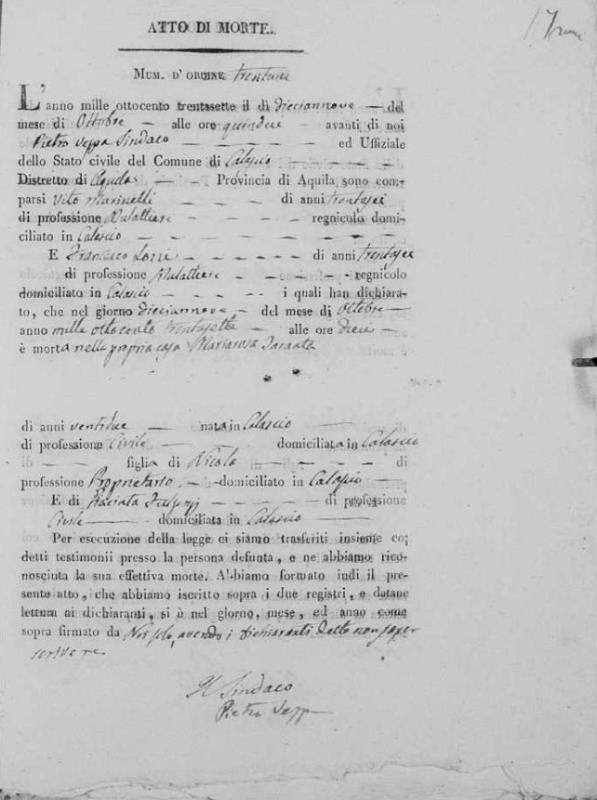 17
ATTO DI MORTE.
Num. d'ordine trentuno
L'anno mille ottocento trentasette il dì dieciannove — del
mese di Ottobre — alle ore quindici — avanti di noi
Pietro Seppa Sindaco — ed Uffiziale
dello Stato civile del Comune di Calascio
Distretto di Aquila — Provincia di Aquila sono com-
parsi Vito Marinelli — di anni trentasei
di professione Mulattiere — regnicolo domi-
ciliato in Calascio
E Francesco — di anni trentasei
di professione Mulattiere — regnicolo
domiciliato in Calascio — i quali han dichiara-
to, che nel giorno dieciannove — del mese di Ottobre —
anno mille ottocento trentasette — alle ore dieci —
è morta nella propria casa Mariarosa
di anni ventidue — nata in Calascio
di professione Civile — domiciliata in Calascio
figlia di Nicola — di
professione Proprietario — domiciliato in Calascio —
E di — di professione
Civile — domiciliata in Calascio —
Per esecuzione della legge ci siamo trasferiti insieme co'
detti testimonii presso la persona defunta, e ne abbiamo rico-
nosciuta la sua effettiva morte. Abbiamo formato indi il pre-
sente atto, che abbiamo iscritto sopra i due registri, e datane
lettura ai dichiaranti, si è nel giorno, mese, ed anno come
sopra firmato da Noi solo, avendo i dichiaranti detto non saper
scrivere
Il Sindaco
Pietro Seppa